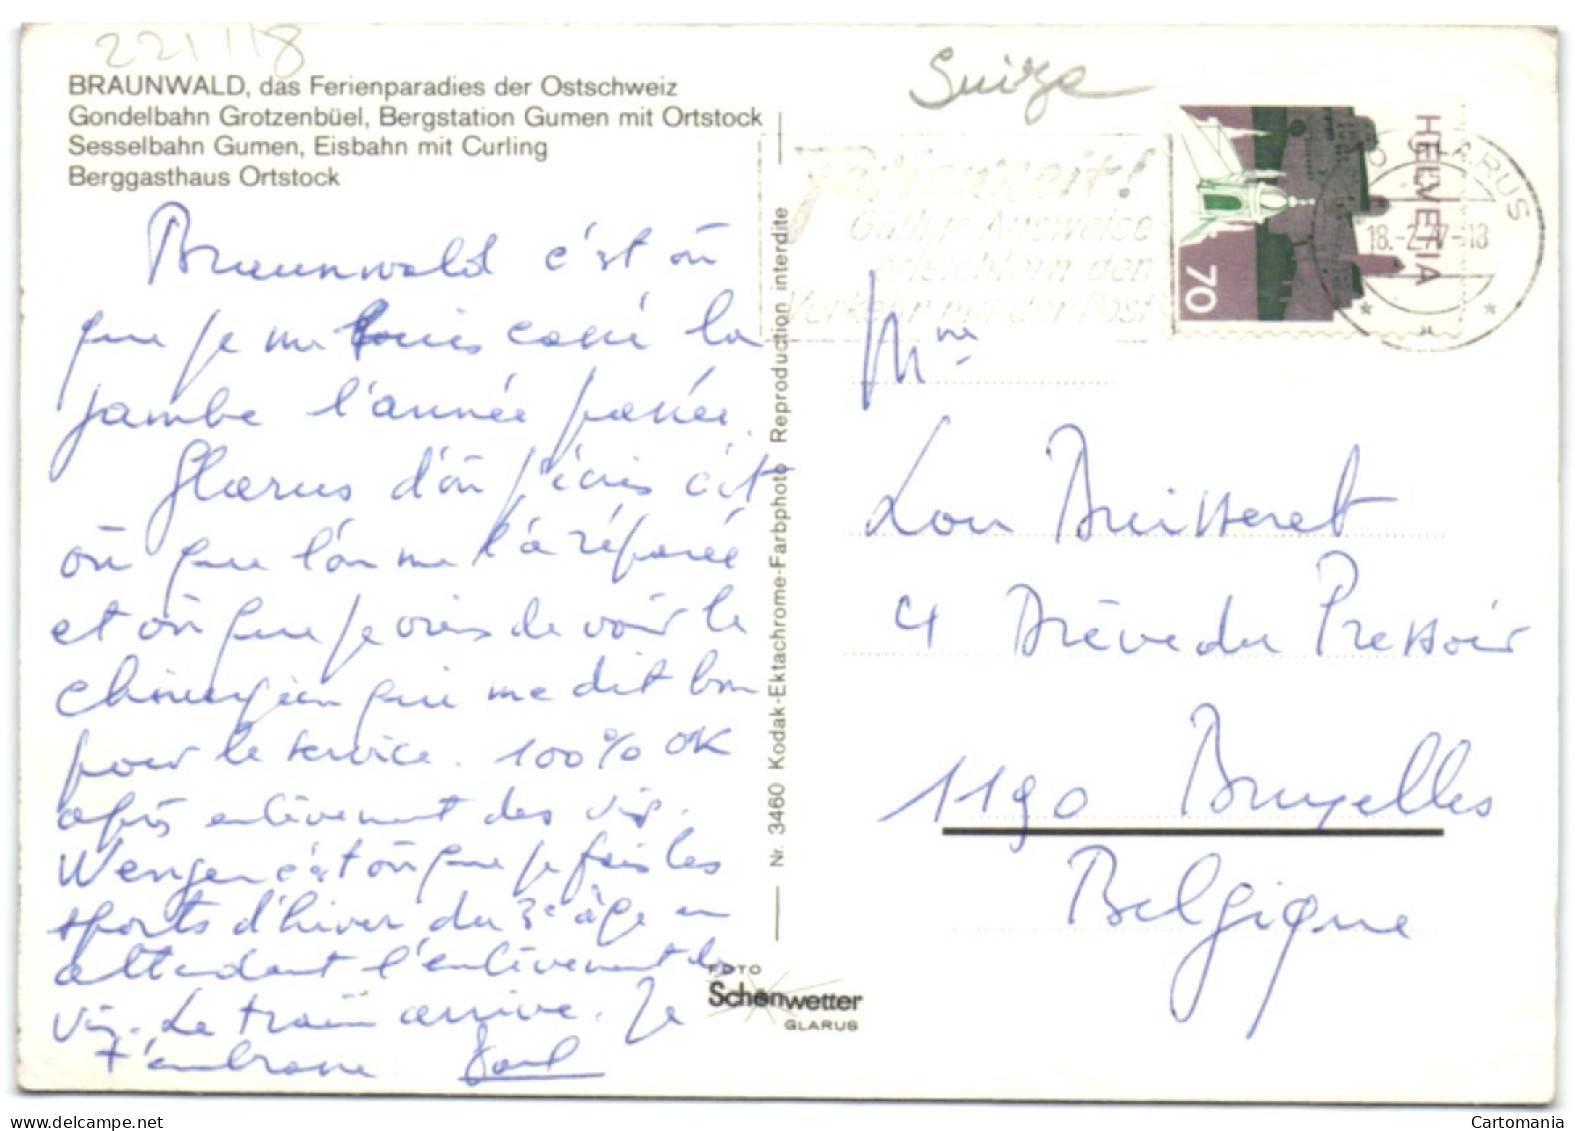 221118
BRAUNWALD, das Ferienparadies der Ostschweiz
Gondelbahn Grotzenbüel, Bergstation Gumen mit Ortstock
Sesselbahn Gumen, Eisbahn mit Curling
Berggasthaus Ortstock
Braunwald c'est où
que je me suis cassé la
jambe l'année passée.
Glarus d'où j'écris c'est
où que l'on me l'a réparée
et où que je viens de voir le
chirurgien qui me dit bon
pour le service. 100% OK
après enlèvement des vis.
Wengen c'est où que je fais les
sports d'hiver du 3e âge en
attendant l'enlèvement des
vis. Le train arrive. Je
t'embrasse
Nr. 3460 Kodak-Ektachrome-Farbphoto Reproduction interdite
FOTO
Schönwetter
GLARUS
Suiza
Ferienzeit!
Gültige Ausweise
erleichtern den
Verkehr mit der Post
HELVETIA
70
GLARUS
18.-2.77-18
Mme
Lou Buisseret
4 Drève du Pressoir
1190 Bruxelles
Belgique
Cartomania